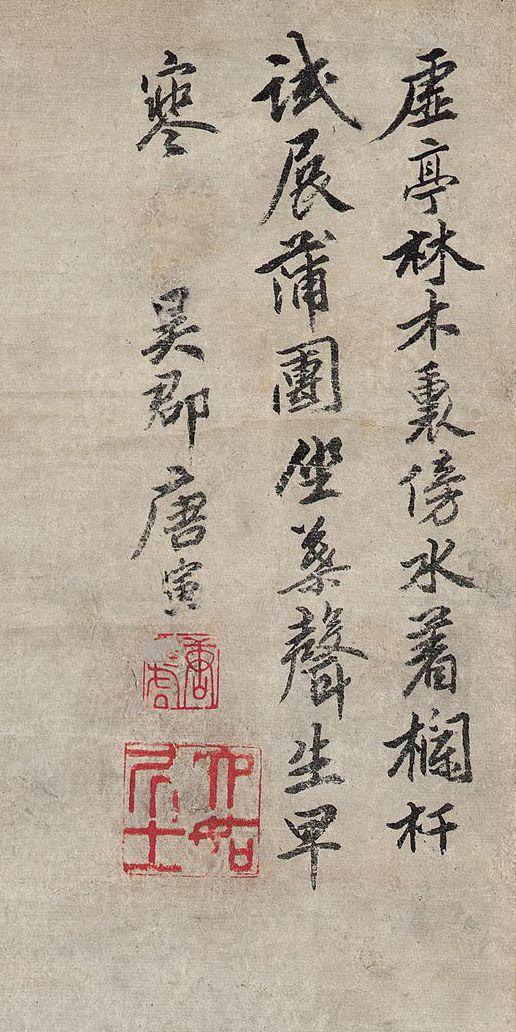 虛亭林木裏傍水著欄杆
試展蒲團坐葉聲生早
寒 吳郡唐寅
唐虎
六如居士